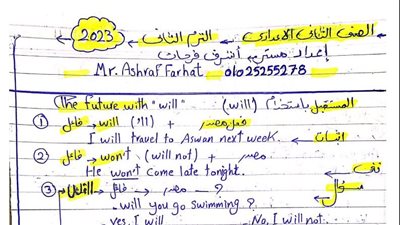 الصف الثاني الاعدادي الترم الثاني 2023
إعداد مستر أشرف فرحات
Mr. Ashraf Farhat 01025255278
The future with "will" (will) المستقبل باستخدام
① فاعل → will ('ll) + فعل مصدر
I will travel to Aswan next week. إثبات
② فاعل → won't (will not) + مصدر
He won't come late tonight. نفى
③ → فاعل → مصدر — ? سؤال
will you go swimming?
yes, I will No, I will not.